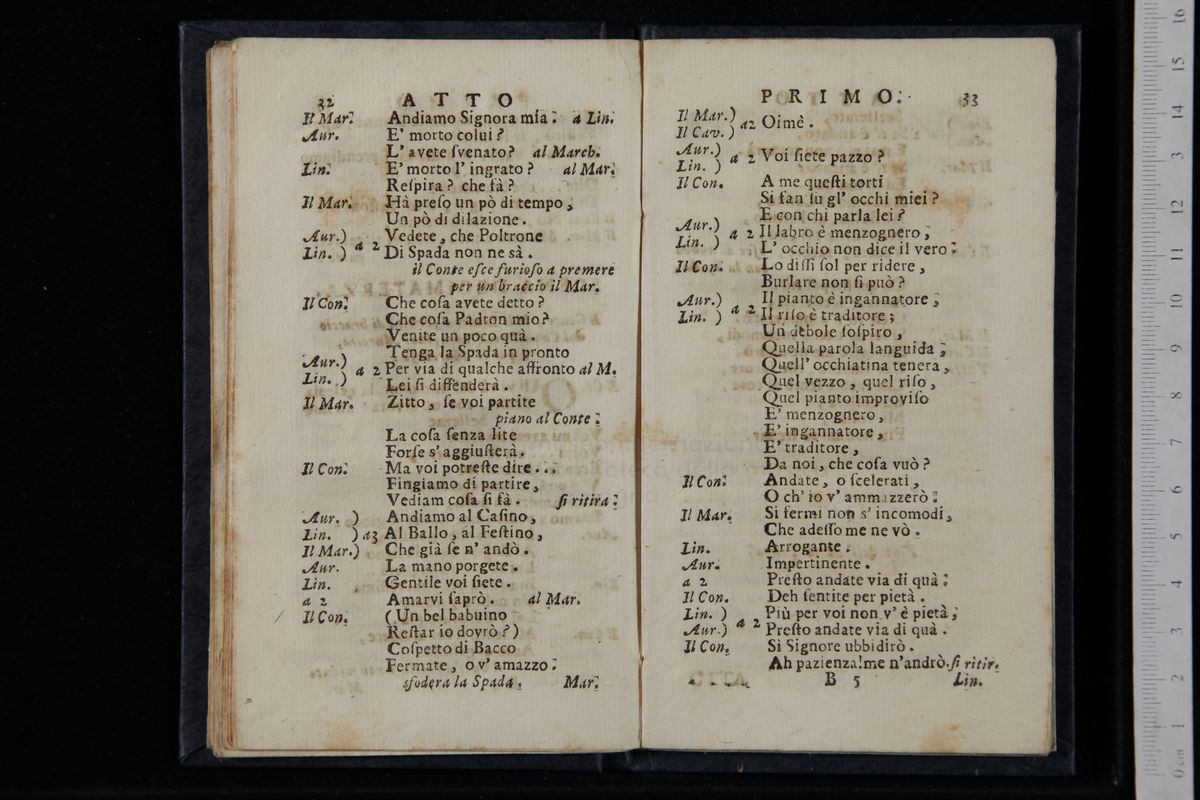 32 ATTO
Il Mar. Andiamo Signora mia. a Lin.
Aur. E' morto colui?
L' avete ſvenato? al March.
Lin. E' morto l' ingrato? al Mar.
Reſpira? che fà?
Il Mar. Hà preſo un pò di tempo,
Un pò di dilazione.
Aur.) Vedete, che Poltrone
Lin. ) a 2 Di Spada non ne sà.
il Conte eſce furioſo a premere
per un braccio il Mar.
Il Con. Che coſa avete detto?
Che coſa Padron mio?
Venite un poco quà.
Tenga la Spada in pronto
Aur.) Lin. ) a 2 Per via di qualche affronto al M.
Lei ſi diffenderà.
Il Mar. Zitto, ſe voi partite
piano al Conte.
La coſa ſenza lite
Forſe s' aggiuſterà.
Il Con. Ma voi potreſte dire...
Fingiamo di partire,
Vediam coſa ſi fà. ſi ritira.
Aur. ) Andiamo al Caſino,
Lin. ) a3 Al Ballo, al Feſtino,
Il Mar.) Che già ſe n' andò.
Aur. La mano porgete.
Lin. Gentile voi ſiete.
a 2 Amarvi ſaprò. al Mar.
Il Con. (Un bel babuino
Reſtar io dovrò?)
Coſpetto di Bacco
Fermate, o v' amazzo.
sfodera la Spada. Mar.
PRIMO. 33
Il Mar.) Il Cav. ) a2 Oimè.
Aur.) Lin. ) a 2 Voi ſiete pazzo?
Il Con. A me queſti torti
Si fan ſu gl' occhi miei?
E con chi parla lei?
Aur.) Lin. ) a 2 Il labro è menzognero,
L' occhio non dice il vero.
Il Con. Lo diſſi ſol per ridere,
Burlare non ſi può?
Aur.) Il pianto è ingannatore,
Lin. ) a 2 Il riſo è traditore;
Un debole ſoſpiro,
Quella parola languida,
Quell' occhiatina tenera,
Quel vezzo, quel riſo,
Quel pianto improviſo
E' menzognero,
E' ingannatore,
E' traditore,
Da noi, che coſa vuò?
Il Con. Andate, o ſcelerati,
O ch' io v' ammazzerò.
Il Mar. Si fermi non s' incomodi,
Che adeſſo me ne vò.
Lin. Arrogante.
Aur. Impertinente.
a 2 Preſto andate via di quà.
Il Con. Deh ſentite per pietà.
Lin. ) Più per voi non v' è pietà,
Aur.) a 2 Preſto andate via di quà.
Il Con. Sì Signore ubbidirò.
Ah pazienza! me n'andrò. ſi ritir.
B 5 Lin.